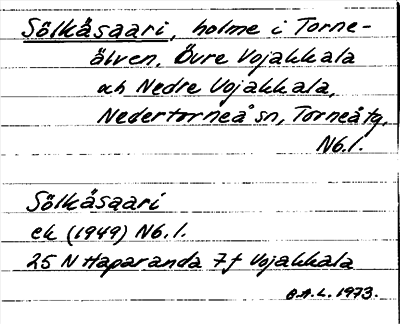 Sölkäsaari, holme i Torne-
älven. Övre Vojakkala
och Nedre Vojakkala,
Nedertorneå sn, Torneå tg,
Nb.l.
Sölkäsaari
ek (1949) Nb.l.
25 N Haparanda 7f Vojakkala
B.A.L. 1973.